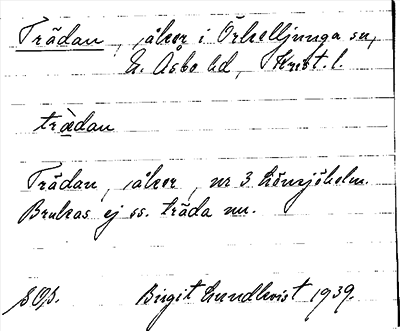 Trädan, åker i Örkelljunga sn,
N. Åsbo hd, Krist. l.
trädan
Trädan, åker, nr 3 Lönsjöholm.
Brukas ej ss. träda nu.
SOS. Birgit Lundkvist 1939.